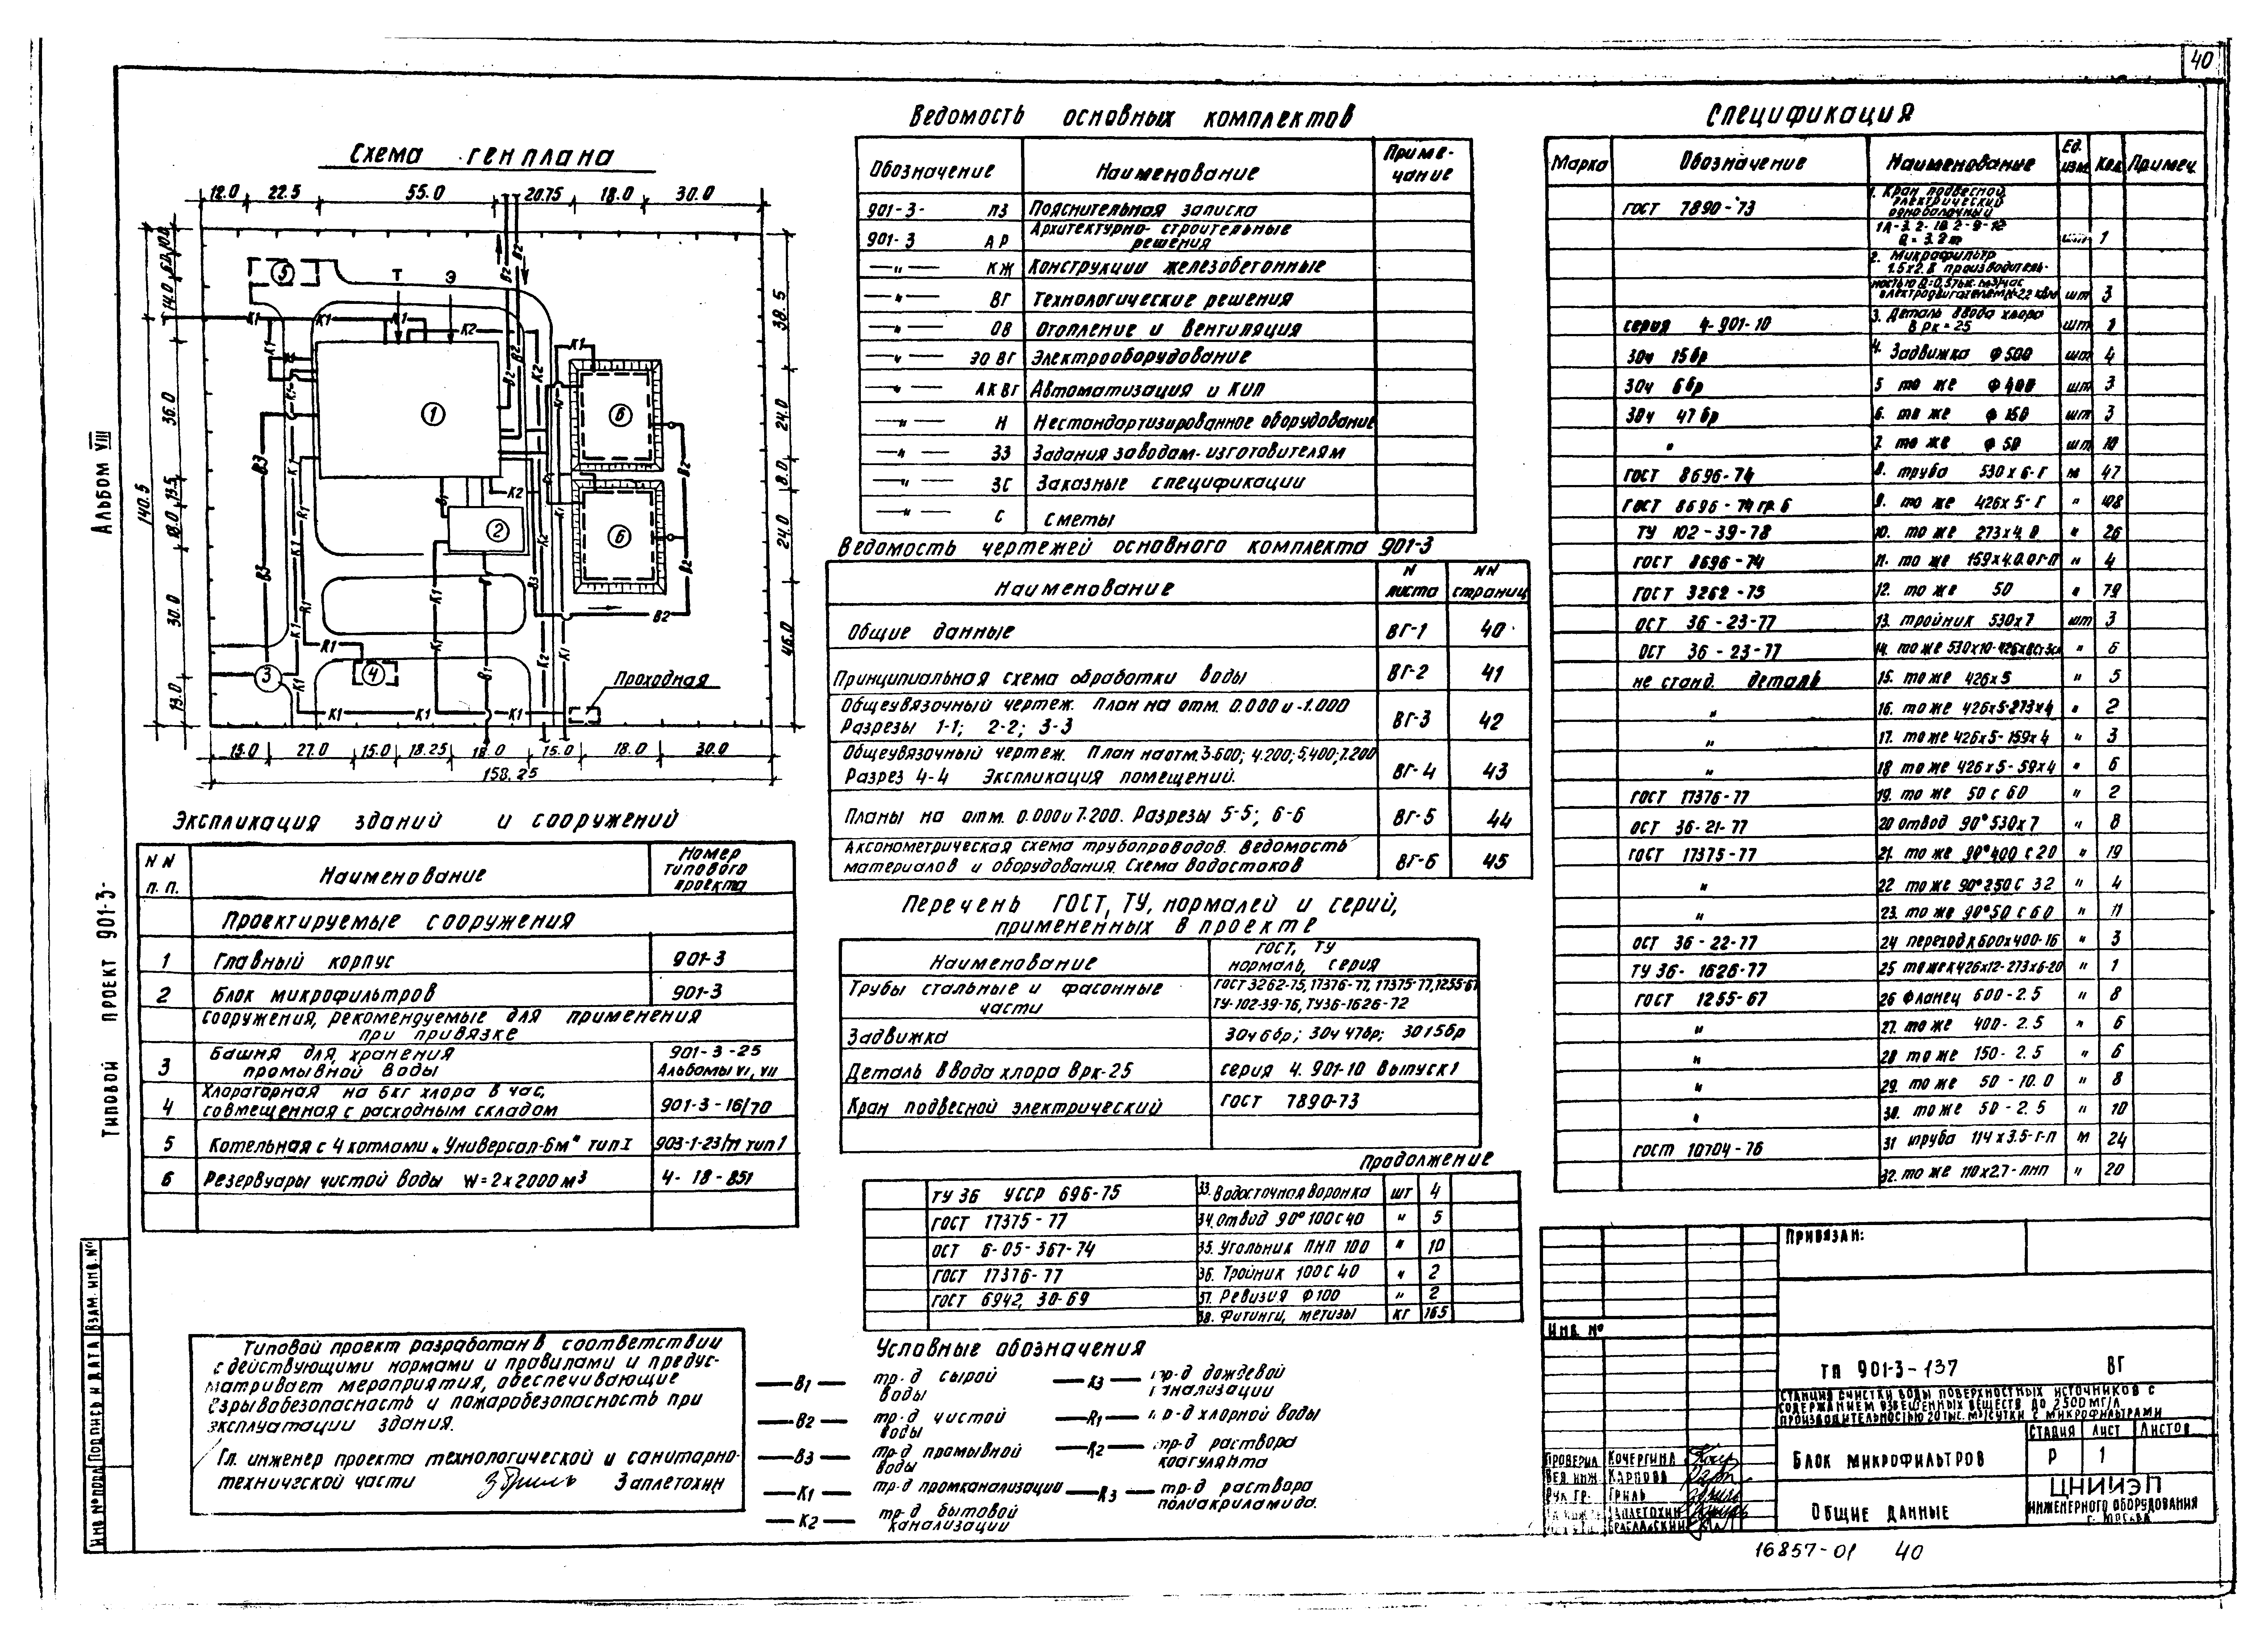 40
Схема генплана
12.0 22.5 55.0 20.75 18.0 30.0
Т Э
К1 К1 К1 К2
В2 В2
1
2
3
4
5
6
6
В3 В3
К1 К1 К1
Проходная
38.5
24.0
8.0
24.0
46.0
140.5
14.0
36.0
13.5
18.0
30.0
13.0
15.0 27.0 15.0 18.25 18.0 15.0 18.0 30.0
158.25
Альбом VIII
Типовой проект 901-3-
Экспликация зданий и сооружений
NN п.п. Наименование Номер типового проекта
Проектируемые сооружения
1 Главный корпус 901-3
2 Блок микрофильтров 901-3
Сооружения, рекомендуемые для применения
при привязке
3 Башня для хранения промывной воды 901-3-25 Альбомы VI, VII
4 Хлораторная на 5кг хлора в час, совмещенная с расходным складом 901-3-16/70
5 Котельная с 4 котлами „Универсал-6м" тип I 903-1-23/71 тип 1
6 Резервуары чистой воды W=2x2000м³ 4-18-851
Типовой проект разработан в соответствии
с действующими нормами и правилами и предус-
матривает мероприятия, обеспечивающие
взрывобезопасность и пожаробезопасность при
эксплуатации здания.
Гл. инженер проекта технологической и санитарно-
технической части Заплетохин
Ведомость основных комплектов
Обозначение Наименование Приме-чание
901-3- ПЗ Пояснительная записка
901-3 АР Архитектурно-строительные решения
—"— КЖ Конструкции железобетонные
—"— ВГ Технологические решения
—"— ОВ Отопление и вентиляция
—"— ЭО ВГ Электрооборудование
—"— АК ВГ Автоматизация и КИП
—"— Н Нестандартизированное оборудование
—"— ЗЗ Задания заводам-изготовителям
—"— ЗС Заказные спецификации
—"— С Сметы
Ведомость чертежей основного комплекта 901-3
Наименование N листа NN страниц
Общие данные ВГ-1 40
Принципиальная схема обработки воды ВГ-2 41
Общеувязочный чертеж. План на отм. 0.000 и -1.000
Разрезы 1-1; 2-2; 3-3 ВГ-3 42
Общеувязочный чертеж. План на отм. 3.600; 4.200; 5.400; 7.200
Разрез 4-4 Экспликация помещений. ВГ-4 43
Планы на отм. 0.000 и 7.200. Разрезы 5-5; 6-6 ВГ-5 44
Аксонометрическая схема трубопроводов. Ведомость
материалов и оборудования. Схема водостоков ВГ-6 45
Перечень ГОСТ, ТУ, нормалей и серий,
примененных в проекте
Наименование ГОСТ, ТУ нормаль, серия
Трубы стальные и фасонные части ГОСТ 3262-75, 17376-77, 17375-77, 1255-67 ТУ-102-39-76, ТУ36-1626-72
Задвижка 30ч6бр; 30ч47бр; 3015бр
Деталь ввода хлора Врк-25 серия 4.901-10 Выпуск 1
Кран подвесной электрический ГОСТ 7890-73
Продолжение
ТУ 36 УССР 696-75 33. Водосточная воронка шт 4
ГОСТ 17375-77 34. Отвод 90° 100С40 " 5
ОСТ 6-05-367-74 35. Угольник ПНП 100 " 10
ГОСТ 17376-77 36. Тройник 100С40 " 2
ГОСТ 6942, 30-69 37. Ревизия Ф100 " 2
38. Фитинги, метизы кг 165
Условные обозначения
—В1— тр-д сырой воды
—В2— тр-д чистой воды
—В3— тр-д промывной воды
—К1— тр-д промканализации
—К2— тр-д бытовой канализации
—К3— тр-д дождевой канализации
—R1— тр-д хлорной воды
—R2— тр-д раствора коагулянта
—R3— тр-д раствора полиакриламида.
Спецификация
Марка Обозначение Наименование Ед. изм. Кол. Примеч.
ГОСТ 7890-73 1. Кран подвесной электрический однобалочный
Q=3.2т 1
2. Микрофильтр 1.5x2.8 производитель-
шт 3
серия 4-901-10 3. Деталь ввода хлора Врк-25 шт 1
30ч 15бр 4. Задвижка Ф500 шт 4
30ч 6бр 5 то же Ф400 шт 3
30ч 47бр 6. то же Ф150 шт 3
" 7. то же Ф50 шт 10
ГОСТ 8696-74 8. труба 530x6-Г м 47
ГОСТ 8696-74 гр. б 9. то же 426x5-Г " 108
ТУ 102-39-78 10. то же 273x4.0 " 26
ГОСТ 8696-74 11. то же 159x4.0 Г-П " 4
ГОСТ 3262-75 12. то же 50 " 79
ОСТ 36-23-77 13. тройник 530x7 шт 3
ОСТ 36-23-77 14. то же " 6
не станд. деталь 15. то же 426x5 " 5
" 16. то же 426x5-273x4 " 2
" 17. то же 426x5-159x4 " 3
" 18 то же 426x5-59x4 " 6
ГОСТ 17376-77 19. то же 50 с 60 " 2
ОСТ 36-21-77 20 отвод 90° 530x7 " 8
ГОСТ 17375-77 21. то же 90° 400 с 20 " 19
" 22 то же 90° 250 С 32 " 4
" 23. то же 90° 50 С 60 " 11
ОСТ 36-22-77 24 переход К 600x400-16 " 3
ТУ 36-1626-77 25 то же К 426x12-273x6-20 " 1
ГОСТ 1255-67 26 Фланец 600-2.5 " 8
" 27. то же 400-2.5 " 6
" 28 то же 150-2.5 " 6
" 29. то же 50-10.0 " 8
" 30. то же 50-2.5 " 10
ГОСТ 10704-76 31 труба 114x3.5-Г-П м 24
32. то же 110x2.7-ПНП " 20
Привязан:
Инв. №
ТП 901-3-137 ВГ
Станция очистки воды поверхностных источников с
содержанием взвешенных веществ до 2500 мг/л
производительностью 20 тыс. м³/сутки с микрофильтрами
Блок микрофильтров
Стадия Лист Листов
Р 1
Общие данные
ЦНИИЭП
инженерного оборудования
г. Москва
Проверил Кочергина
Вед. инж. Карпова
Рук. гр. Гриль
Заплетохин
Инв № подл Подпись и дата Взам. инв. №
16857-01 40